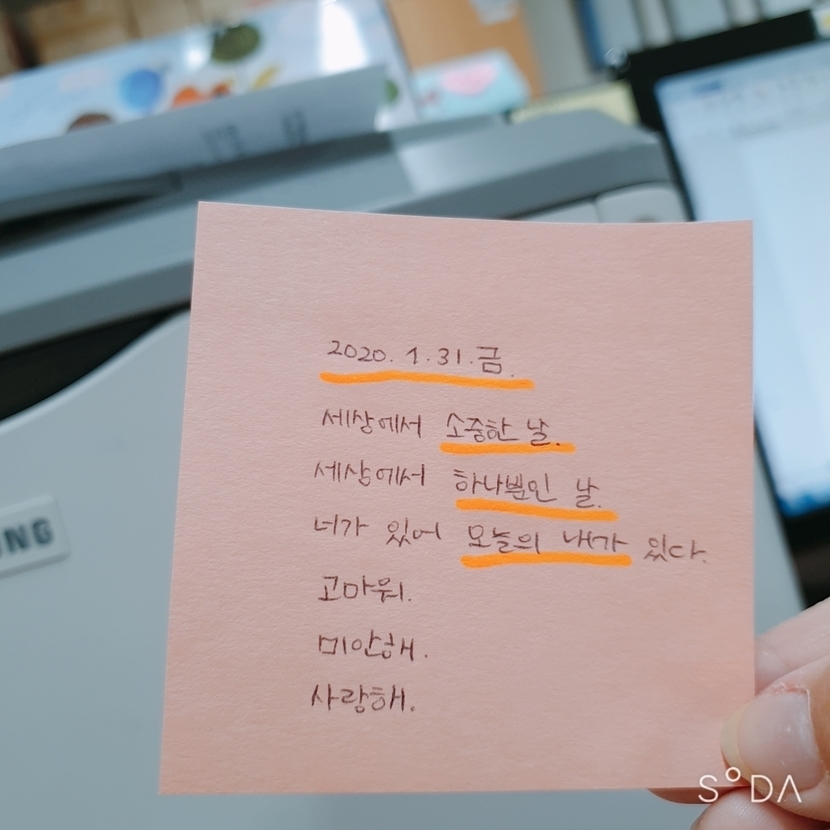 2020. 1. 31. 금.
세상에서 소중한 날.
세상에서 하나뿐인 날.
너가 있어 오늘의 내가 있다.
고마워.
미안해.
사랑해.
NG
SODA